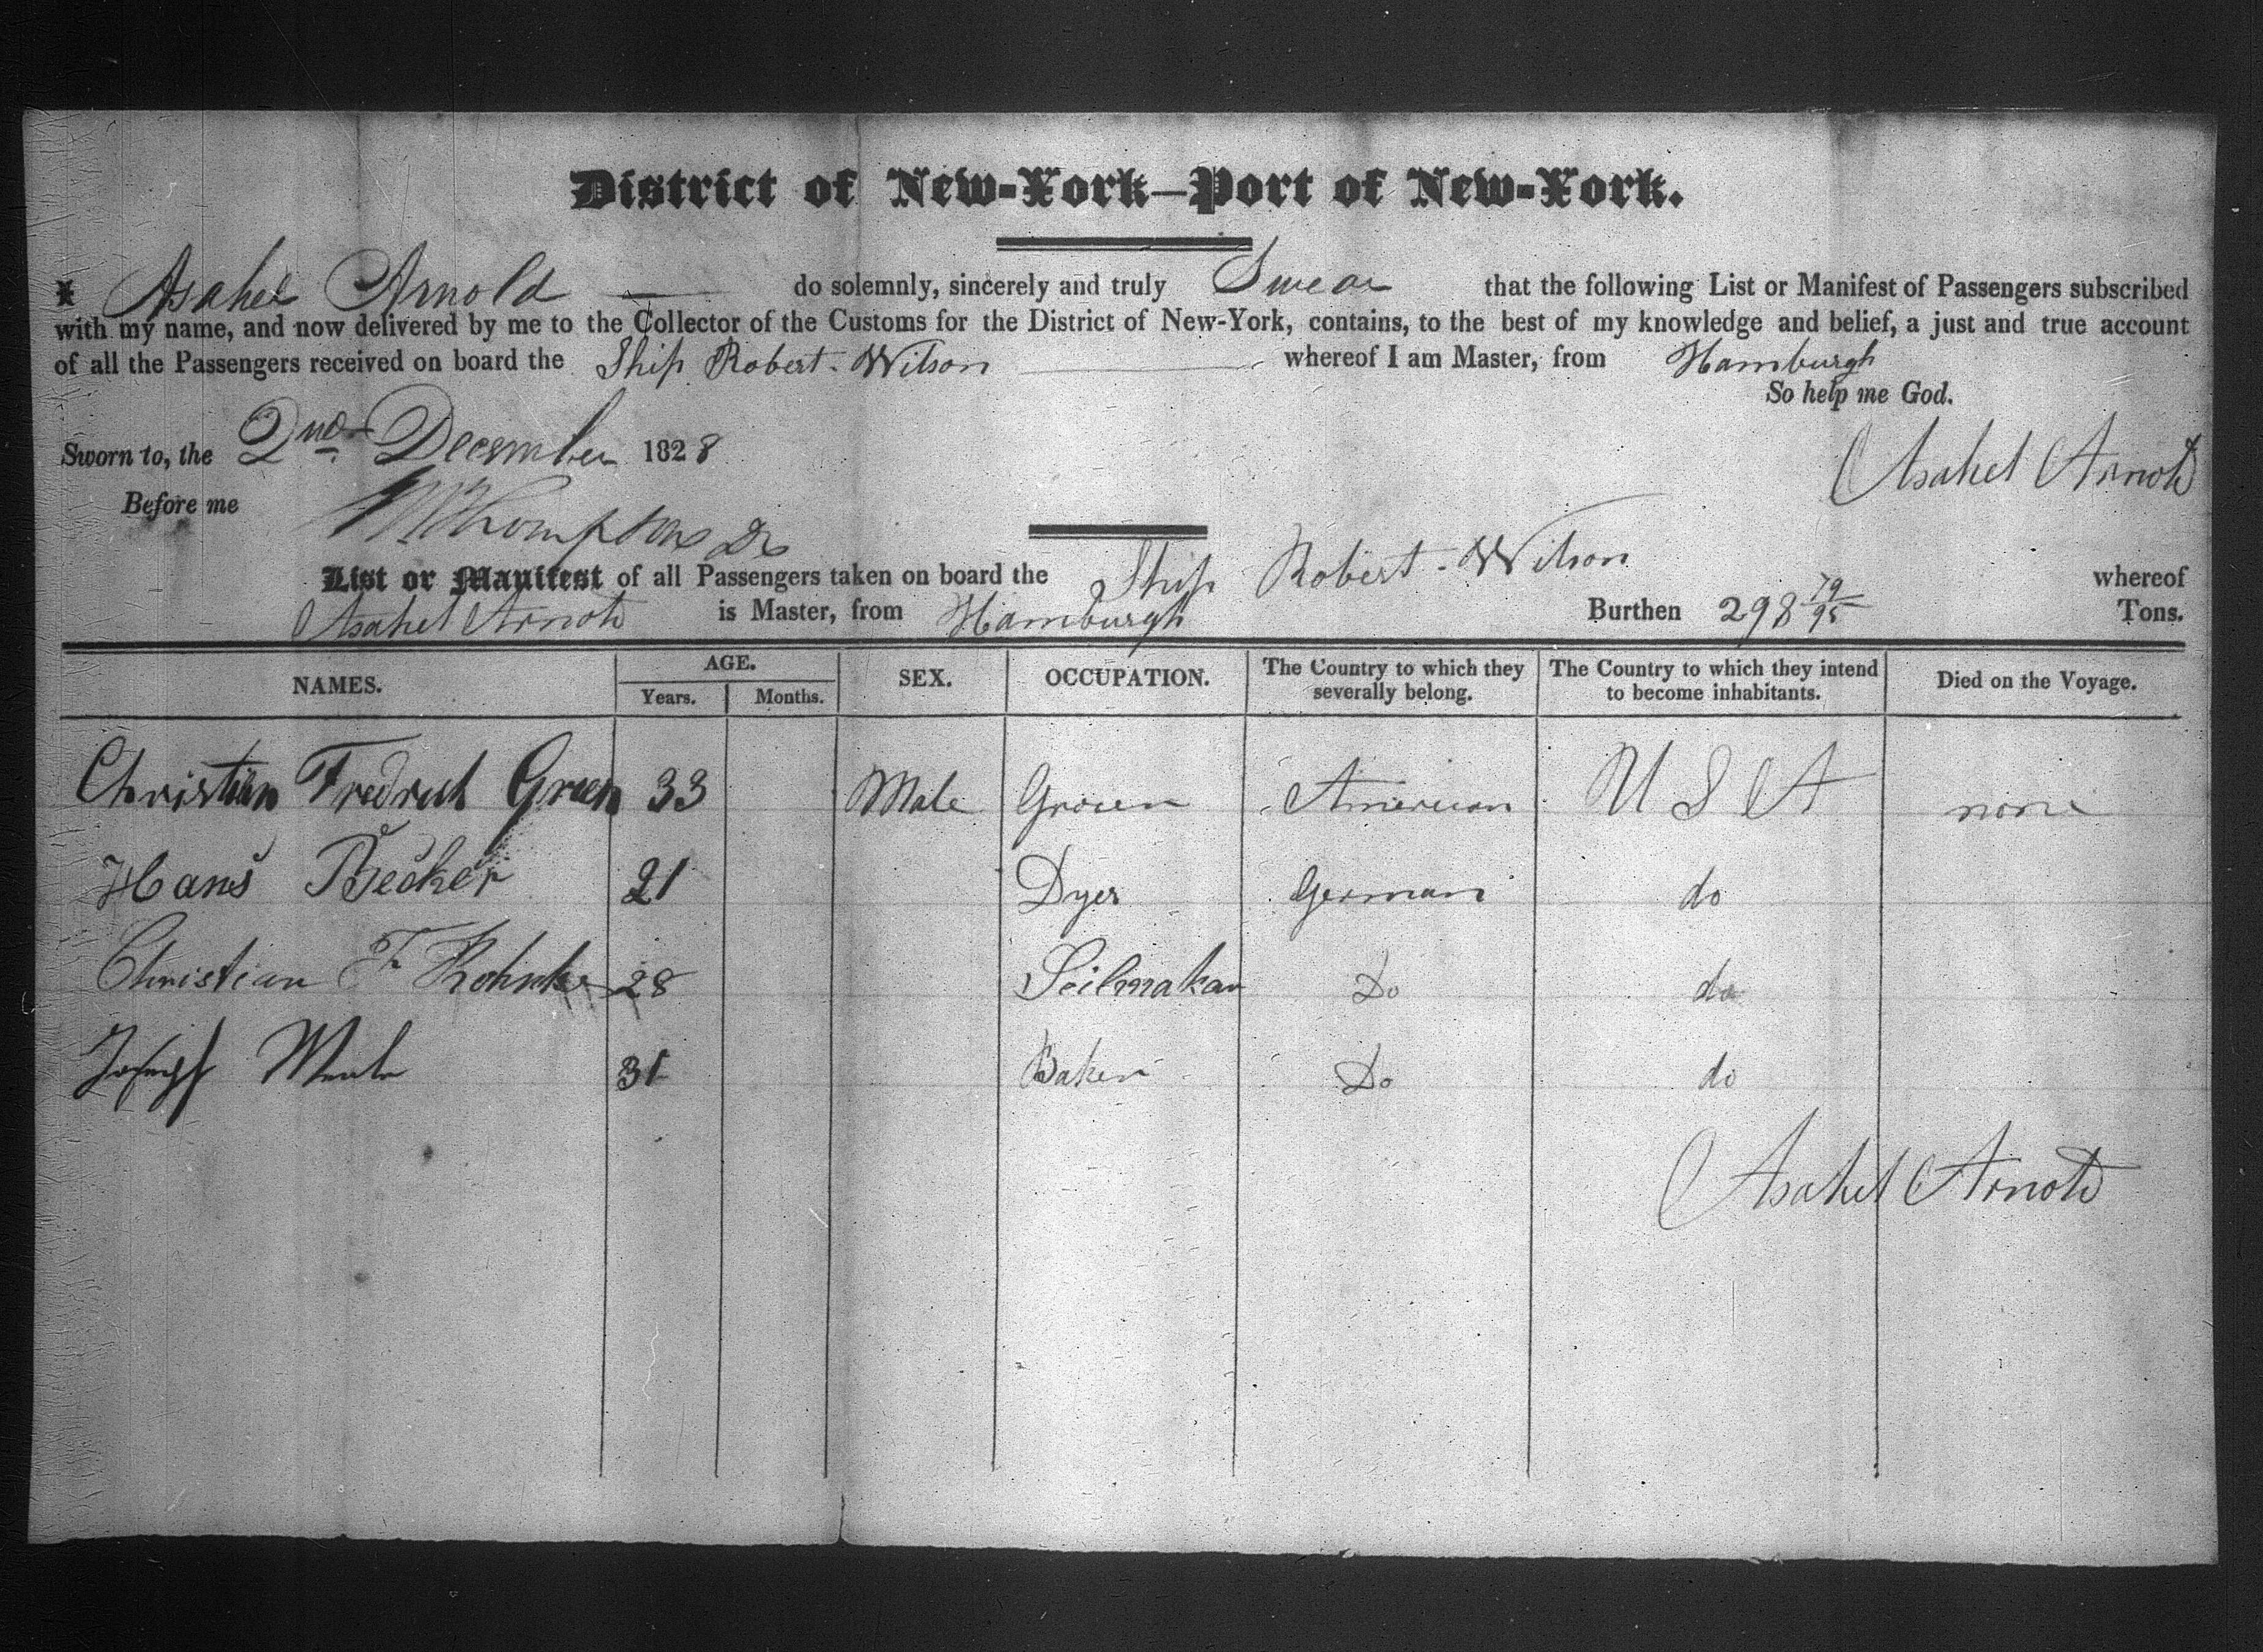 District of New-York—Port of New-York.
I Asahel Arnold do solemnly, sincerely and truly Swear that the following List or Manifest of Passengers subscribed
with my name, and now delivered by me to the Collector of the Customs for the District of New-York, contains, to the best of my knowledge and belief, a just and true account
of all the Passengers received on board the Ship Robert-Wilson whereof I am Master, from Hamburgh
So help me God.
Sworn to, the 2nd December 1828
Asahel Arnold
Before me Thompson
List or Manifest of all Passengers taken on board the Ship Robert-Wilson whereof
Asahel Arnold is Master, from Hamburgh Burthen 298 79/95 Tons.
NAMES. AGE. SEX. OCCUPATION. The Country to which they severally belong. The Country to which they intend to become inhabitants. Died on the Voyage.
Years. Months.
Christian Fredrick Green 33 Male Grocer American U S A none
Hans Becker 21 Dyer German do
Christian F 28 Seilmaker Do do
Joseph 31 Baker Do do
Asahel Arnold